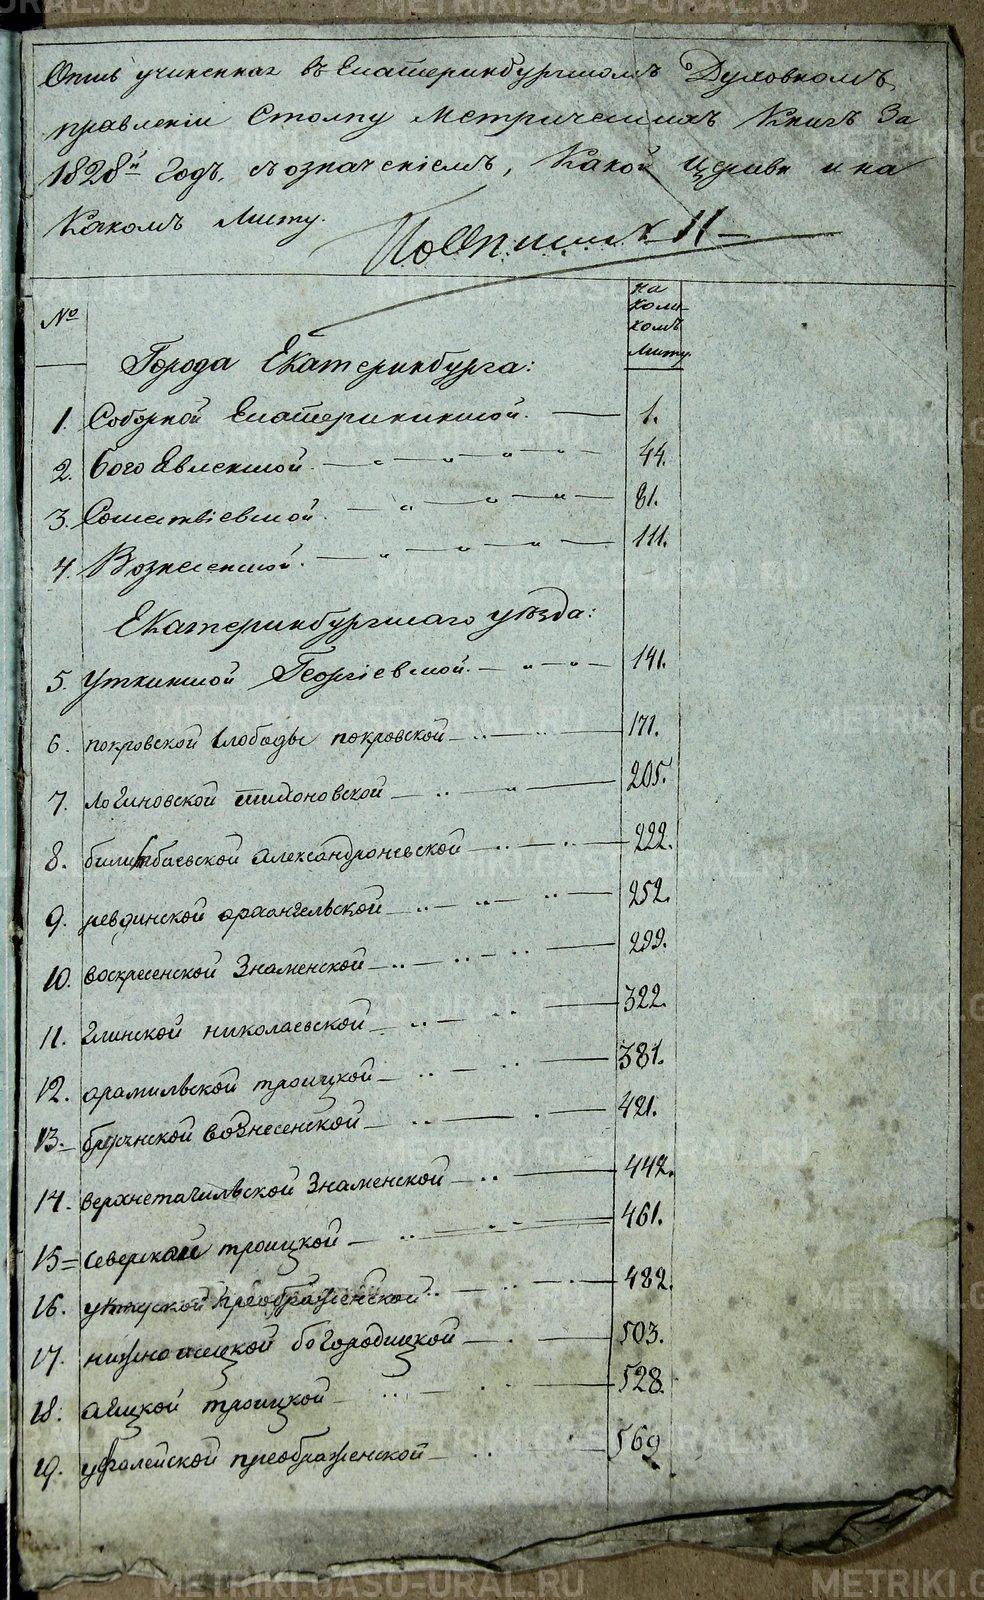 Опись учиненная въ Екатеринбургскомъ Духовномъ
правленіи Столпу Метрическихъ Книгъ За
1828й годъ. съ означеніемъ, Какой Церкви и на
Какомъ Листу.
По Описи № 11
№
на
коли-
комъ
листу.
Города Екатеринбурга:
1. Соборной Екатерининской. 1.
2. Богоявленской. 44.
3. Сошествіевской 81.
4. Вознесенской. 111.
Екатеринбургскаго уѣзда:
5. Уткинской Георгіевской. 141.
6. покровской слободы покровской 171.
7. логиновской 205.
8. билимбаевской Александроневской 222.
9. ревдинской архангельской 252.
10. воскресенской Знаменской 299.
11. глинской николаевской 322.
12. арамильской троицкой 381.
13. вознесенской 421.
14. верхнетагильской Знаменской 442.
15 северской троицкой 461.
16. уктуской преображенской 482.
17. богородицкой 503.
18. троицкой 528.
19. уфалейской преображенской 569
METRIKI.GASO-URAL.RU